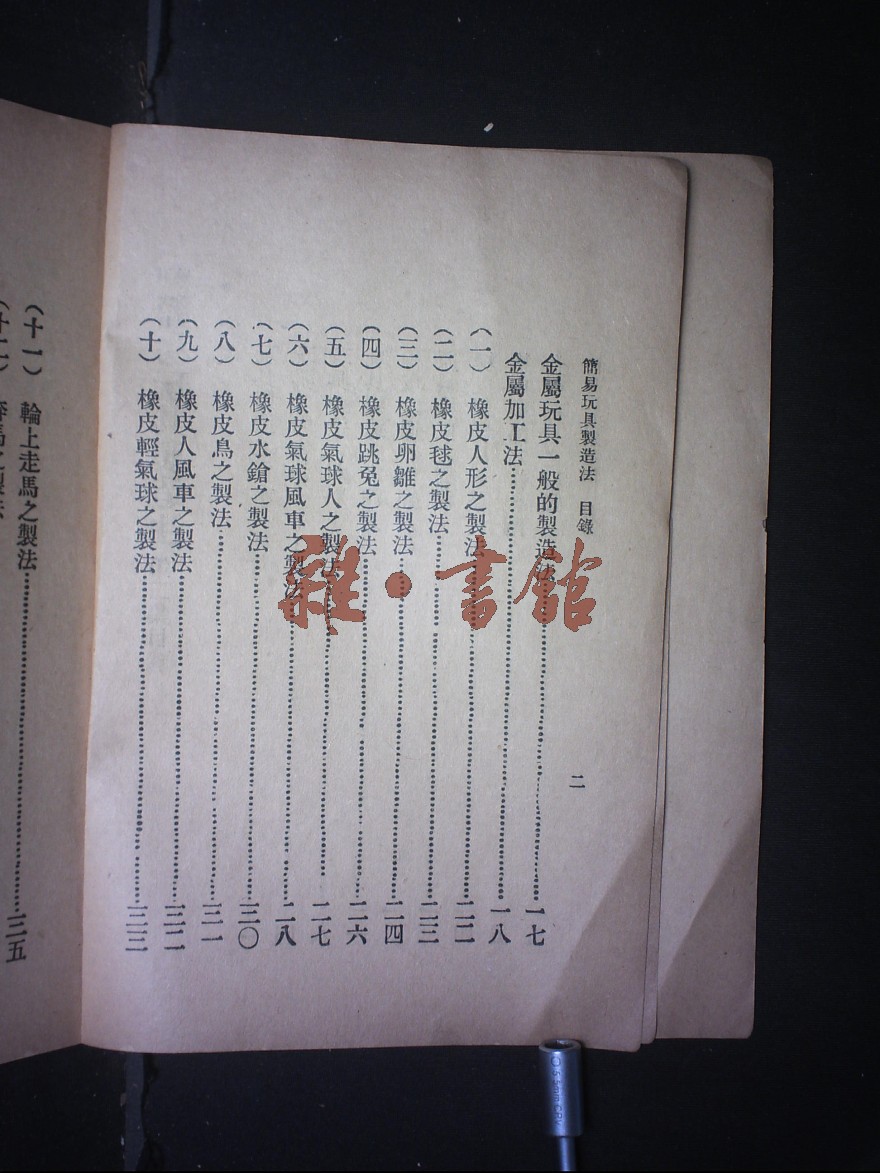 簡易玩具製造法 目錄 二
金屬玩具一般的製造法……一七
金屬加工法……一八
(一) 橡皮人形之製法……二二
(二) 橡皮毬之製法……二三
(三) 橡皮卵雛之製法……二四
(四) 橡皮跳兔之製法……二六
(五) 橡皮氣球人之製法……二七
(六) 橡皮氣球風車之製法……二八
(七) 橡皮水鎗之製法……三〇
(八) 橡皮鳥之製法……三一
(九) 橡皮人風車之製法……三二
(十) 橡皮輕氣球之製法……三三
(十一) 輪上走馬之製法……三五
雜·書館